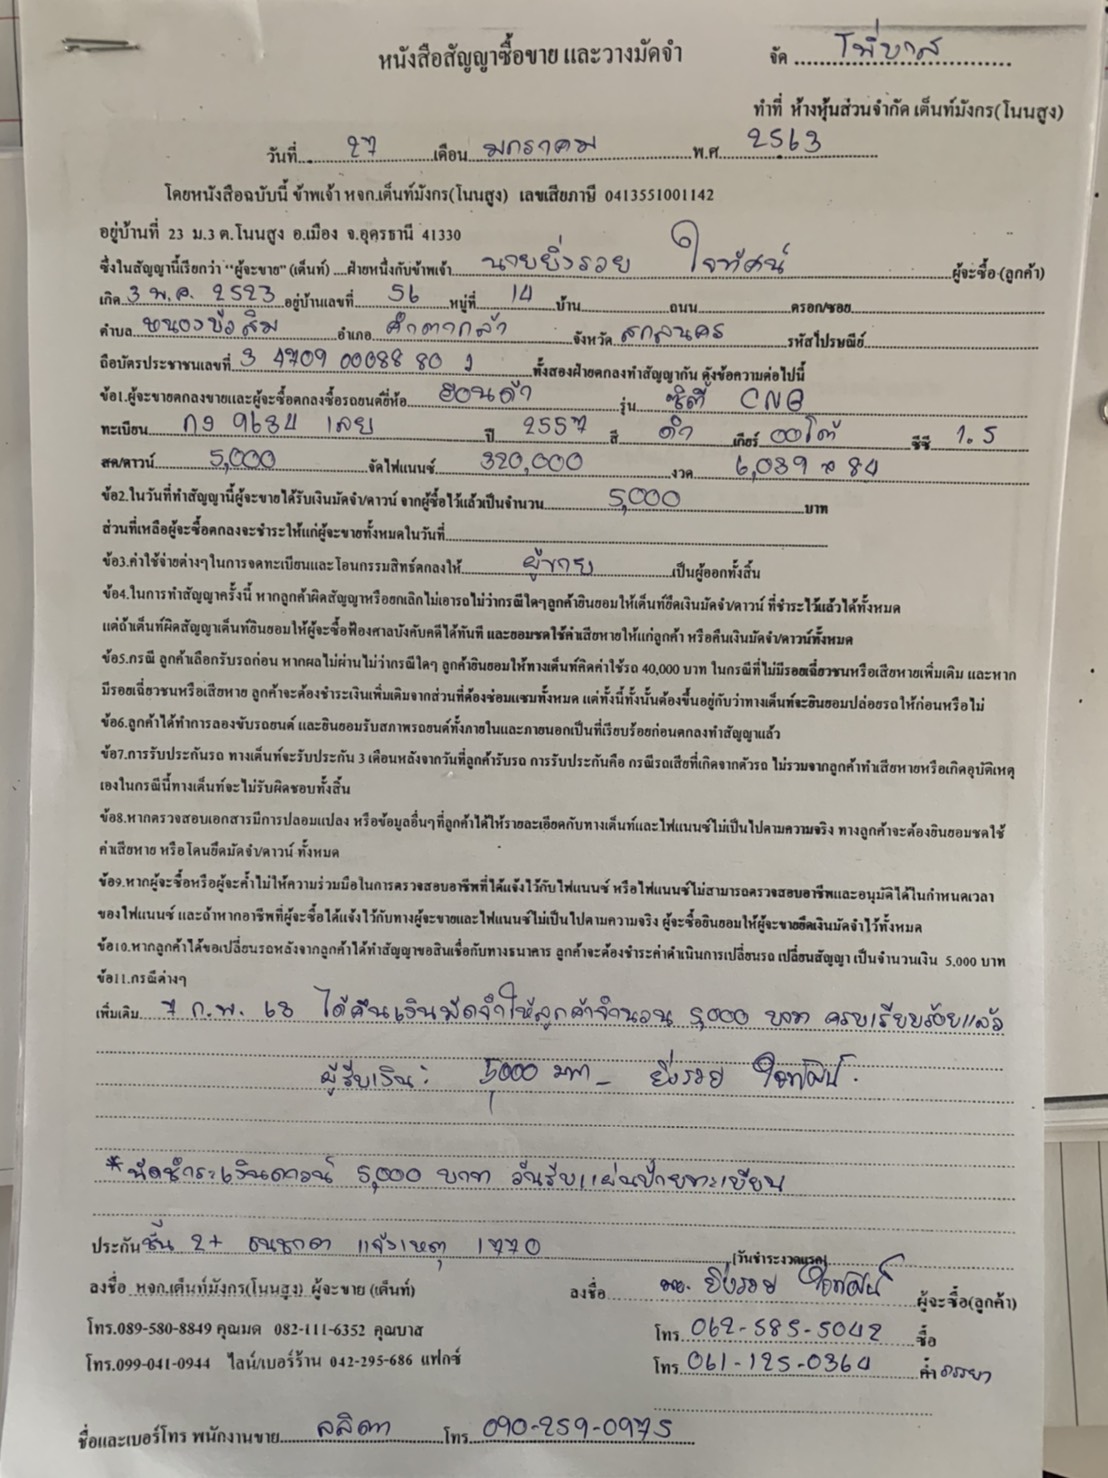 หนังสือสัญญาซื้อขาย และวางมัดจำ
จัด โพี่บาส
ทำที่ ห้างหุ้นส่วนจำกัด เต็นท์มังกร(โนนสูง)
วันที่ 27 เดือน มกราคม พ.ศ 2563
โดยหนังสือฉบับนี้ ข้าพเจ้า หจก.เต็นท์มังกร(โนนสูง) เลขเสียภาษี 0413551001142
อยู่บ้านที่ 23 ม.3 ต.โนนสูง อ.เมือง จ.อุดรธานี 41330
ซึ่งในสัญญานี้เรียกว่า "ผู้จะขาย" (เต็นท์) ....ฝ่ายหนึ่งกับข้าพเจ้า นายยิ่งรวย ใจทัศน์ ผู้จะซื้อ (ลูกค้า)
เกิด 3 พ.ค. 2523 อยู่บ้านเลขที่ 56 หมู่ที่ 14 บ้าน ถนน ตรอก/ซอย
ตำบล หนองบัวสิม อำเภอ คำตากล้า จังหวัด สกลนคร รหัสไปรษณีย์
ถือบัตรประชาชนเลขที่ 3 4709 00088 80 ทั้งสองฝ่ายตกลงทำสัญญากัน ดังข้อความต่อไปนี้
ข้อ1.ผู้จะขายตกลงขายและผู้จะซื้อตกลงซื้อรถยนต์ยี่ห้อ ฮอนด้า รุ่น ซิตี้ CNG
ทะเบียน กง 9684 เลย ปี 2557 สี ดำ เกียร์ ออโต้ ซีซี 1.5
สด/ดาวน์ 5,000 จัดไฟแนนซ์ 320,000 งวด 6,039 x 84
ข้อ2.ในวันที่ทำสัญญานี้ผู้จะขายได้รับเงินมัดจำ/ดาวน์ จากผู้ซื้อไว้แล้วเป็นจำนวน 5,000 บาท
ส่วนที่เหลือผู้จะซื้อตกลงจะชำระให้แก่ผู้จะขายทั้งหมดในวันที่
ข้อ3.ค่าใช้จ่ายต่างๆในการจดทะเบียนและโอนกรรมสิทธ์ตกลงให้ ผู้ขาย เป็นผู้ออกทั้งสิ้น
ข้อ4.ในการทำสัญญาครั้งนี้ หากลูกค้าผิดสัญญาหรือยกเลิกไม่เอารถไม่ว่ากรณีใดๆลูกค้ายินยอมให้เต็นท์ยึดเงินมัดจำ/ดาวน์ ที่ชำระไว้แล้วได้ทั้งหมด
แต่ถ้าเต็นท์ผิดสัญญาเต็นท์ยินยอมให้ผู้จะซื้อฟ้องศาลบังคับคดีได้ทันที และยอมชดใช้ค่าเสียหายให้แก่ลูกค้า หรือคืนเงินมัดจำ/ดาวน์ทั้งหมด
ข้อ5.กรณี ลูกค้าเลือกรับรถก่อน หากผลไม่ผ่านไม่ว่ากรณีใดๆ ลูกค้ายินยอมให้ทางเต็นท์คิดค่าใช้รถ 40,000 บาท ในกรณีที่ไม่มีรอยเฉี่ยวชนหรือเสียหายเพิ่มเติม และหาก
มีรอยเฉี่ยวชนหรือเสียหาย ลูกค้าจะต้องชำระเงินเพิ่มเติมจากส่วนที่ต้องซ่อมแซมทั้งหมด แต่ทั้งนี้ทั้งนั้นต้องขึ้นอยู่กับว่าทางเต็นท์จะยินยอมปล่อยรถให้ก่อนหรือไม่
ข้อ6.ลูกค้าได้ทำการลองขับรถยนต์ และยินยอมรับสภาพรถยนต์ทั้งภายในและภายนอกเป็นที่เรียบร้อยก่อนตกลงทำสัญญาแล้ว
ข้อ7.การรับประกันรถ ทางเต็นท์จะรับประกัน 3 เดือนหลังจากวันที่ลูกค้ารับรถ การรับประกันคือ กรณีรถเสียที่เกิดจากตัวรถ ไม่รวมจากลูกค้าทำเสียหายหรือเกิดอุบัติเหตุ
เองในกรณีนี้ทางเต็นท์จะไม่รับผิดชอบทั้งสิ้น
ข้อ8.หากตรวจสอบเอกสารมีการปลอมแปลง หรือข้อมูลอื่นๆที่ลูกค้าได้ให้รายละเอียดกับทางเต็นท์และไฟแนนซ์ไม่เป็นไปตามความจริง ทางลูกค้าจะต้องยินยอมชดใช้
ค่าเสียหาย หรือโดนยึดมัดจำ/ดาวน์ ทั้งหมด
ข้อ9.หากผู้จะซื้อหรือผู้จะค้ำไม่ให้ความร่วมมือในการตรวจสอบอาชีพที่ได้แจ้งไว้กับไฟแนนซ์ หรือไฟแนนซ์ไม่สามารถตรวจสอบอาชีพและอนุมัติได้ในกำหนดเวลา
ของไฟแนนซ์ และถ้าหากอาชีพที่ผู้จะซื้อได้แจ้งไว้กับทางผู้จะขายและไฟแนนซ์ไม่เป็นไปตามความจริง ผู้จะซื้อยินยอมให้ผู้จะขายยึดเงินมัดจำไว้ทั้งหมด
ข้อ10.หากลูกค้าได้ขอเปลี่ยนรถหลังจากลูกค้าได้ทำสัญญาขอสินเชื่อกับทางธนาคาร ลูกค้าจะต้องชำระค่าดำเนินการเปลี่ยนรถ เปลี่ยนสัญญา เป็นจำนวนเงิน 5,000 บาท
ข้อ11.กรณีต่างๆ
เพิ่มเติม 7 ก.พ. 63 ได้คืนเงินมัดจำให้ลูกค้าจำนวน 5,000 บาท ครบเรียบร้อยแล้ว
ผู้รับเงิน: 5,000 บาท - ยิ่งรวย ใจทัศน์.
*นัดชำระเงินดาวน์ 5,000 บาท วันรับแผ่นป้ายทะเบียน
ประกัน ชั้น 2+ ธนชาต แจ้งเหตุ 1770 (วันชำระงวดแรก)
ลงชื่อ หจก.เต็นท์มังกร(โนนสูง) ผู้จะขาย (เต็นท์) ลงชื่อ นาย ยิ่งรวย ใจทัศน์ ผู้จะซื้อ(ลูกค้า)
โทร.089-580-8849 คุณมด 082-111-6352 คุณบาส โทร. 062-585-5042 ซื้อ
โทร.099-041-0944 ไลน์/เบอร์ร้าน 042-295-686 แฟกซ์ โทร. 061-125-0364 ค้ำ ภรรยา
ชื่อและเบอร์โทร พนักงานขาย ลลิตา โทร 090-259-0975